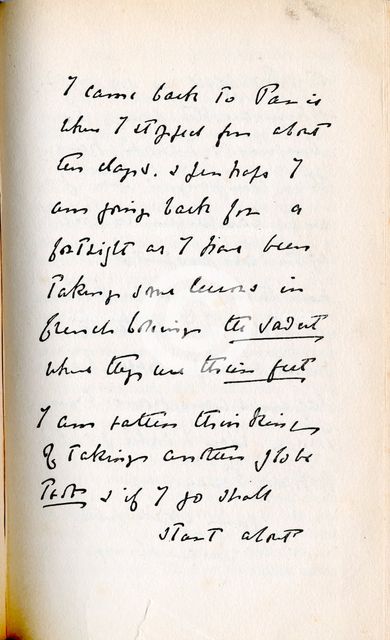 I came back to Paris
when I stopped for about
ten days. & perhaps I
am going back for a
fortnight as I have been
taking some lessons in
french boxing the savat
where they use their feet
I am rather thinking
of taking another globe
trot & if I go shall
start about